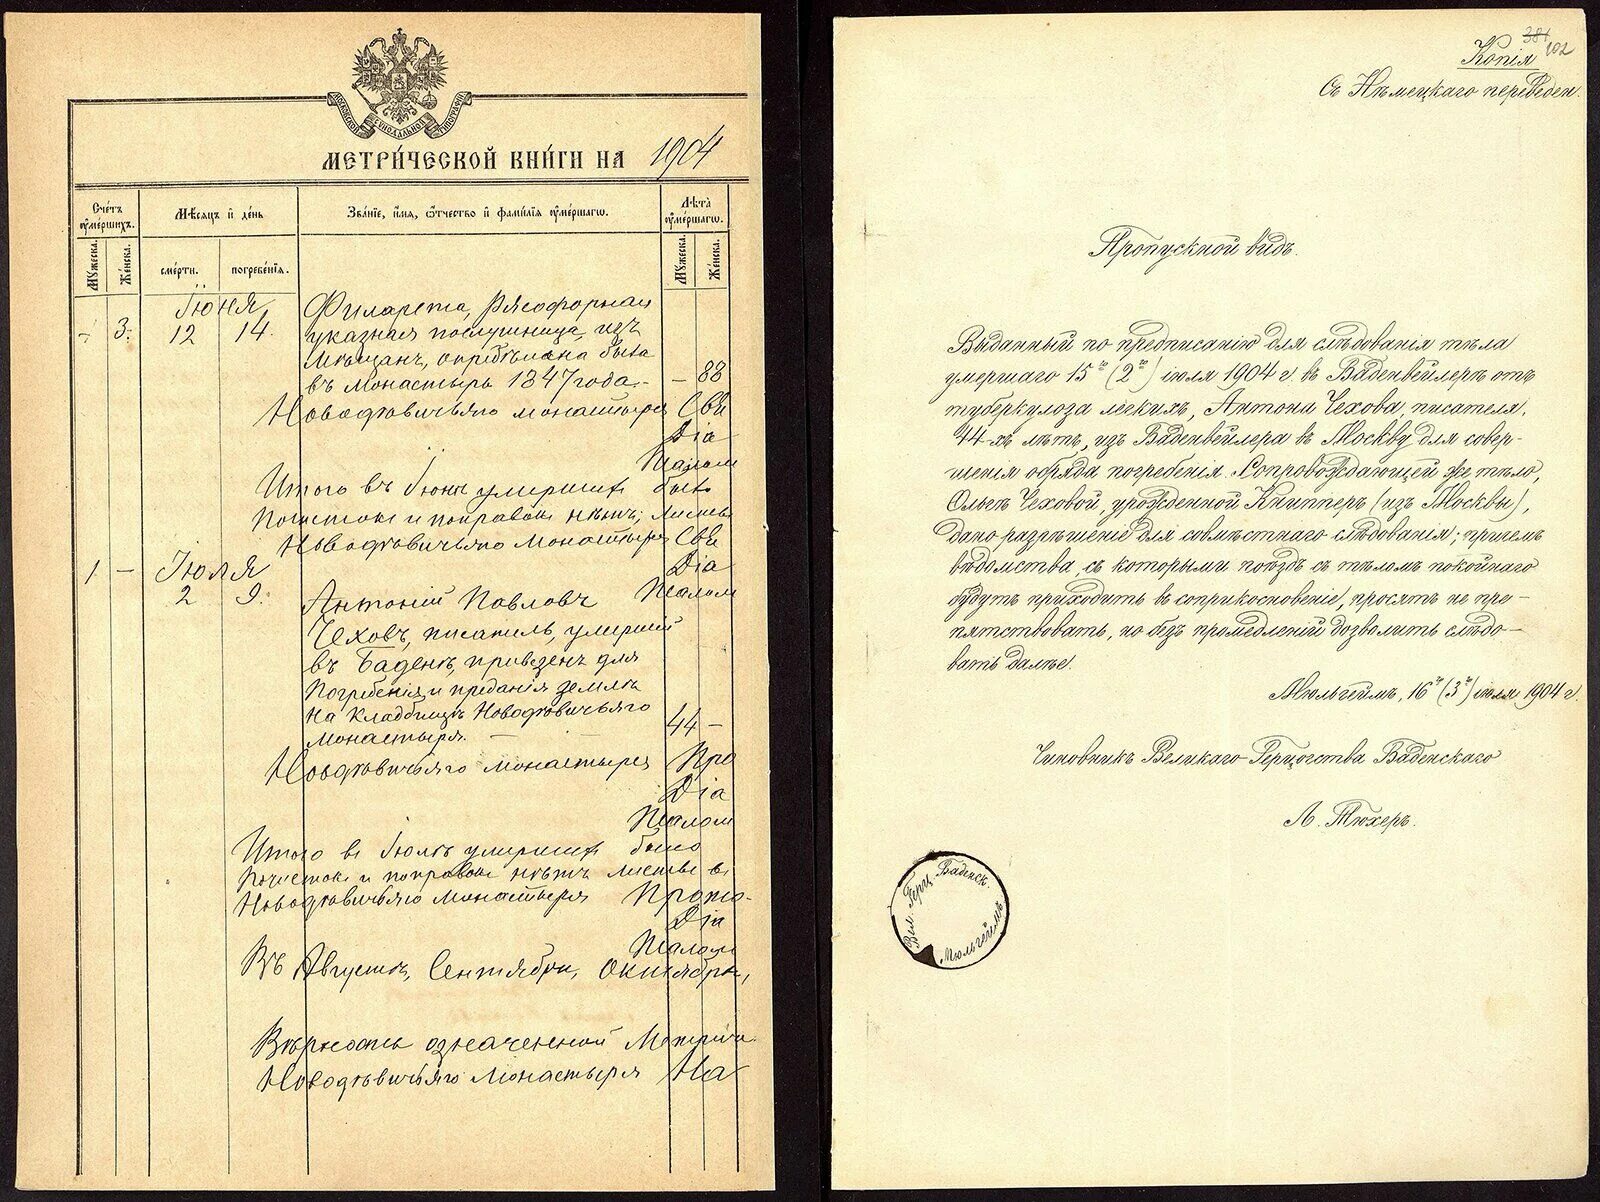 МОСКОВСКОЙ СѴНОДАЛЬНОЙ ТИПОГРАФІИ
МЕТРИ́ЧЕСКОЙ КНИ́ГИ НА 1904
Сче́тъ ᲂу҆ме́ршихъ.
Мѣ́сяцъ и҆ де́нь
Зва́нїе, и҆́мя, ѻ҆́тчество и҆ фами́лїя ᲂу҆ме́ршагѡ.
Лѣ́та ᲂу҆ме́ршагѡ.
Мꙋ́жеска.
Же́нска.
сме́рти.
погребе́нїя.
Мꙋ́жеска.
Же́нска.
Іюня
12 14.
3.
Филарета, Рясофорная
указная послушница, изъ
Мѣщанъ, опредѣлена была
въ монастырь 1847 года.
— 83
Новодѣвичьяго монастыря Свя
Діа
Псалом
Итого въ Іюнѣ умершихъ было
Почистокъ и поправокъ нѣтъ; листы
Новодѣвичьяго Монастыря Свя
Діа
Псалом
1 — Іюля
2 9.
Антоній Павловъ
Чеховъ, писатель, умершій
въ Баденѣ, привезенъ для
Погребенія и преданія землѣ
на кладбищѣ Новодѣвичьяго
монастыря. —
44 —
Новодѣвичьяго монастыря Про
Діа
Псалом
Итого въ Іюлѣ умершихъ было
Почистокъ и поправокъ нѣтъ листы въ
Новодѣвичьяго монастыря Прото-
Діа
Псалом
Въ Августѣ, Сентябрѣ, Октябрѣ,
Вѣрность означенной Метриче
Новодѣвичьяго Монастыря На
381
102
Копія
Съ Нѣмецкаго переведен.
Пропускной видъ.
Выданный по предписанію для слѣдованія тѣла
умершаго 15го (2го) іюля 1904 г. въ Баденвейлерѣ отъ
туберкулоза легкихъ, Антона Чехова, писателя,
44-хъ лѣтъ, изъ Баденвейлера въ Москву для совер-
шенія обряда погребенія. Сопровождающей же тѣло,
Ольгѣ Чеховой, урожденной Книпперъ (изъ Москвы),
дано разрѣшеніе для совмѣстнаго слѣдованія; причемъ
вѣдомства, съ которыми поѣздъ съ тѣломъ покойнаго
будутъ приходить въ соприкосновеніе, просятъ не пре-
пятствовать, но безъ промедленій дозволить слѣдо-
вать далѣе.
Мюльгеймъ, 16го (3го) іюля 1904 г.
Чиновникъ Великаго Герцогства Баденскаго
Л. Тюхеръ.
Вел. Герц. Баденск.
Мюльгеймъ